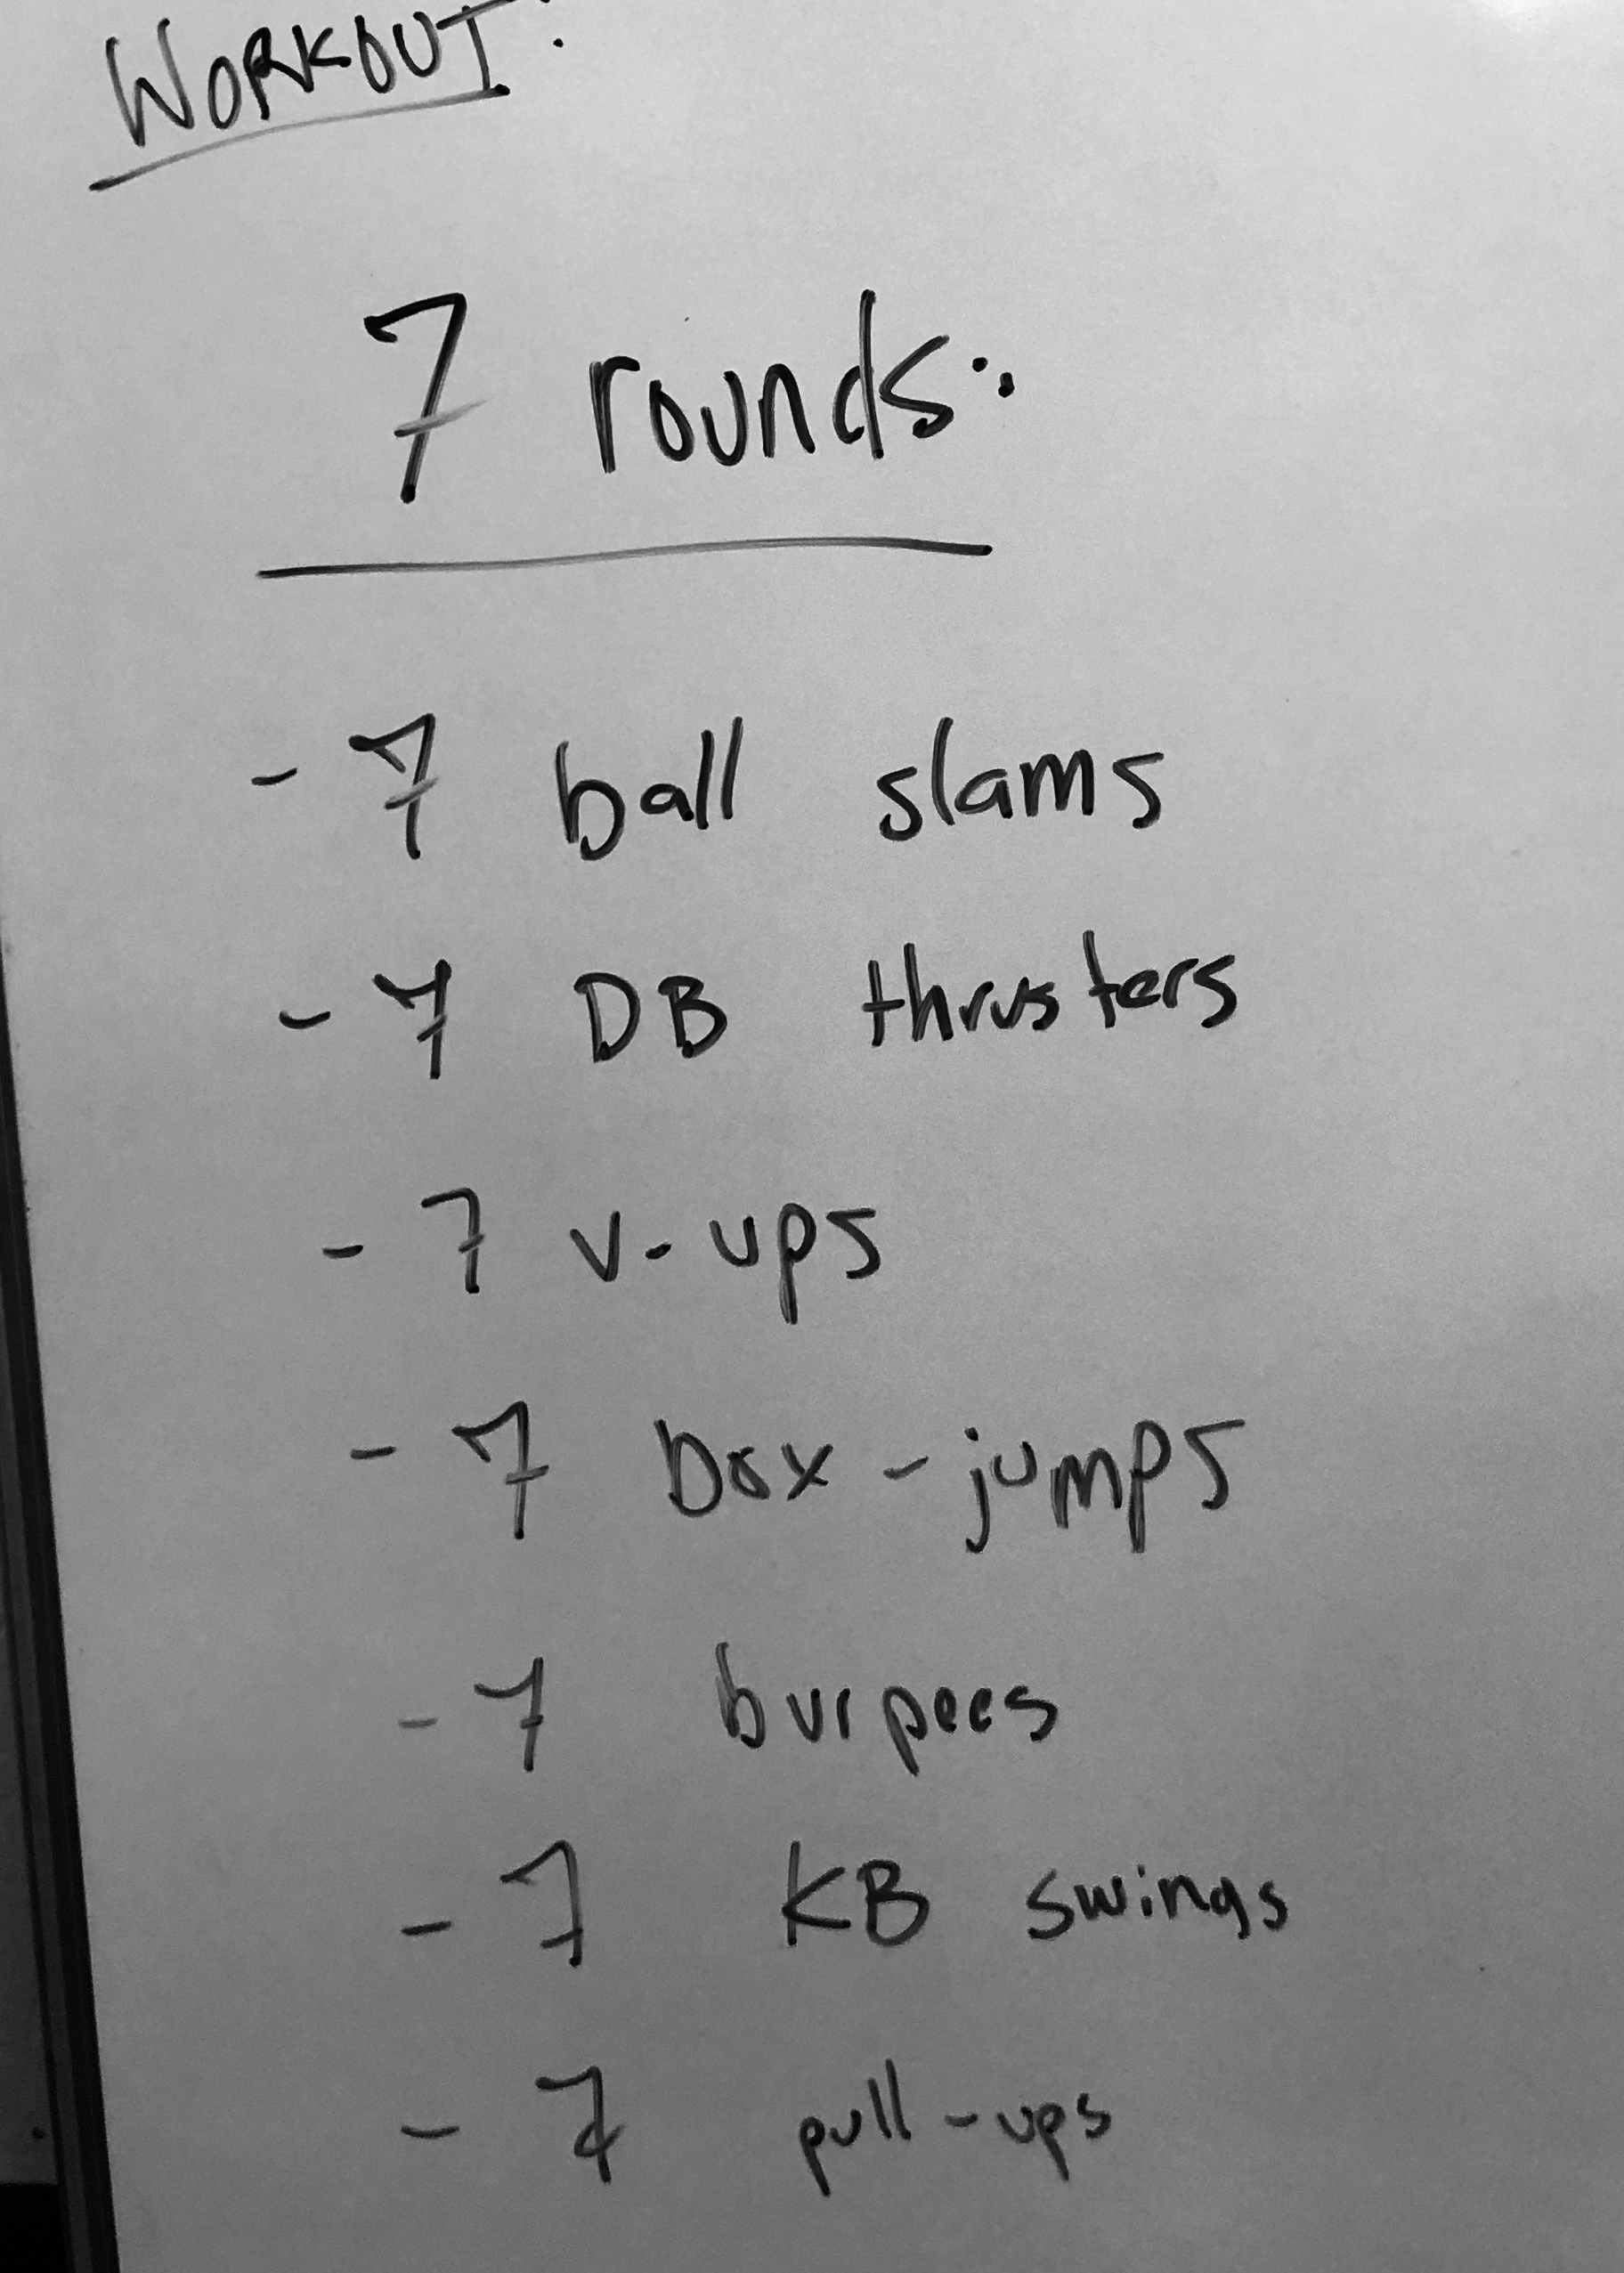 WORKOUT:
7 rounds:
- 7 ball slams
- 7 DB thrusters
- 7 v-ups
- 7 box-jumps
- 7 burpees
- 7 KB swings
- 7 pull-ups